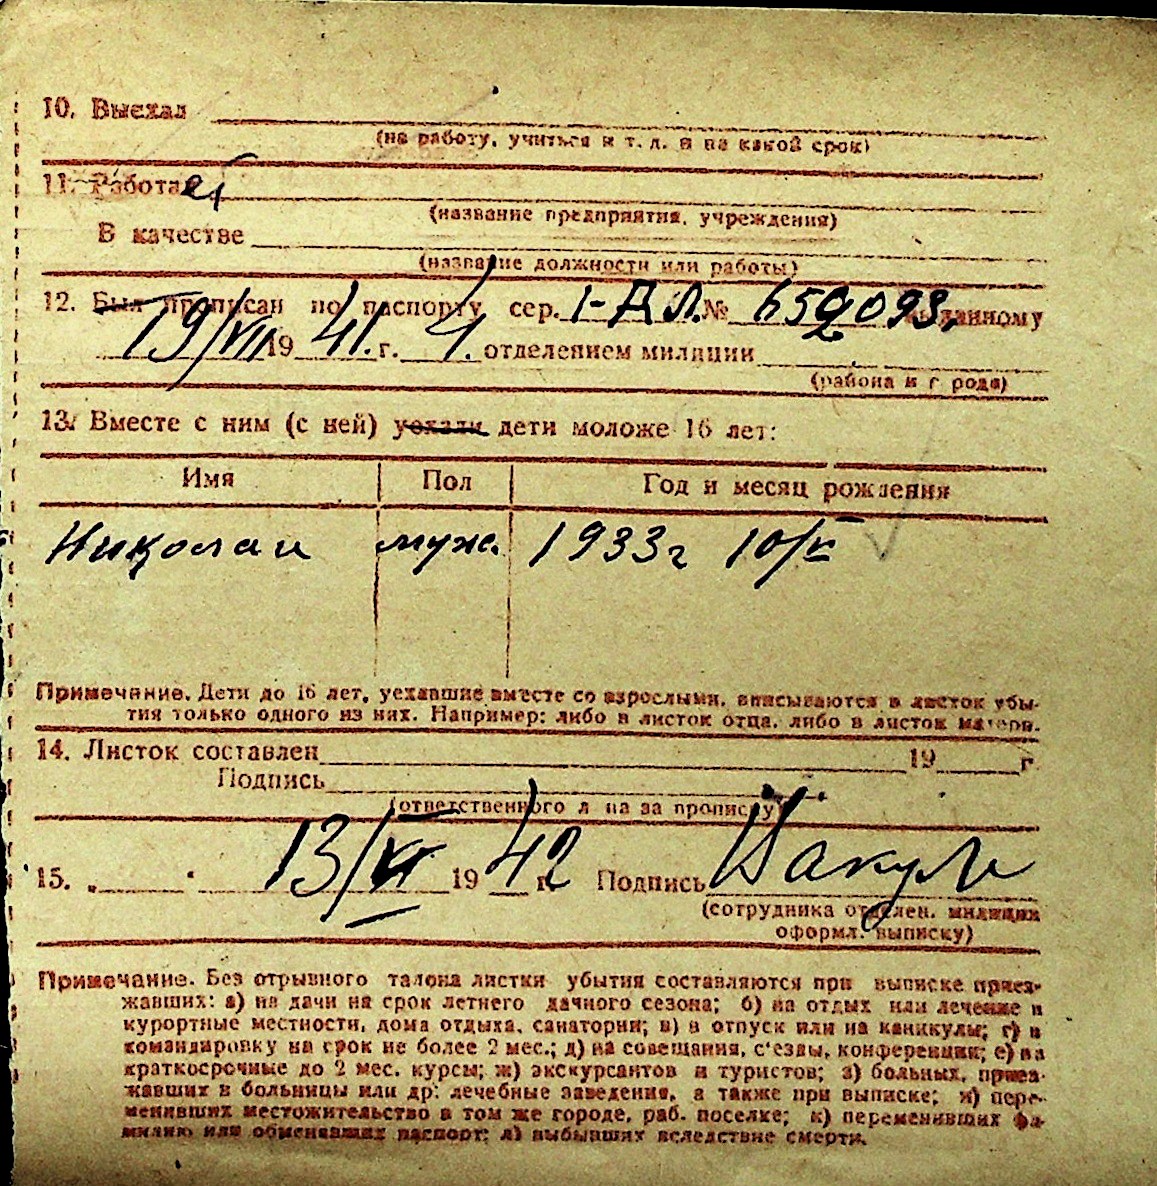 10. Выехал
(на работу, учиться и т. д. и на какой срок)
11. Работает
(название предприятия, учреждения)
В качестве
(название должности или работы)
12. Был прописан по паспорту сер. 1-ДЛ. № 659093, выданному
19/VII 1941. г. 4. отделением милиции
(района и города)
13. Вместе с ним (с ней) уехали дети моложе 16 лет:
Имя Пол Год и месяц рождения
Николай муж. 1933 г 10/V
Примечание. Дети до 16 лет, уехавшие вместе со взрослыми, вписываются в листок убы-
тия только одного из них. Например: либо в листок отца, либо в листок матери.
14. Листок составлен 19 г
Подпись
(ответственного лица за прописку)
15. „ “ 13/VI 1942 г Подпись
(сотрудника отделен. милиции
оформл. выписку)
Примечание. Без отрывного талона листки убытия составляются при выписке приез-
жавших: а) на дачи на срок летнего дачного сезона; б) на отдых или лечение в
курортные местности, дома отдыха, санатории; в) в отпуск или на каникулы; г) в
командировку на срок не более 2 мес.; д) на совещания, с‘езды, конференции; е) на
краткосрочные до 2 мес. курсы; ж) экскурсантов и туристов; з) больных, приез-
жавших в больницы или др. лечебные заведения, а также при выписке; и) пере-
менивших местожительство в том же городе, раб. поселке; к) переменивших фа-
милию или обменявших паспорт; л) выбывших вследствие смерти.